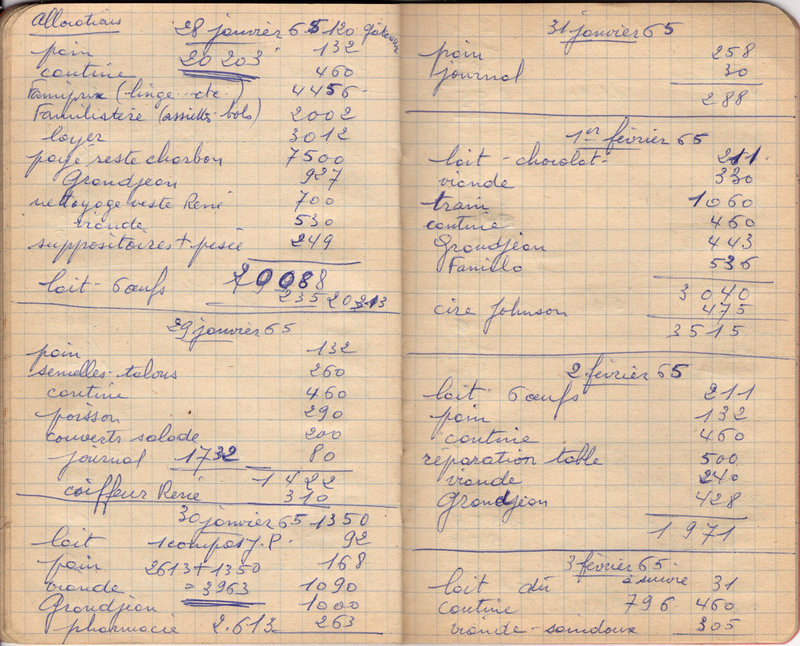 Allocations 28 janvier 65 120 gâteau
pain 20 203 132
cantine 460
Famiprix (linge etc.) 4456
Familistère (assiettes-bols) 2002
loyer 3012
payé reste charbon 7500
Grandjean 927
nettoyage veste René 700
viande 530
suppositoires + pesée 249
20088
lait - 6 œufs 235 20 313
29 janvier 65
pain 132
semelles-talons 260
cantine 460
poisson 290
couverts salade 200
journal 1732 80
1422
coiffeur René 310
30 janvier 65 1350
lait 1 compos J.P. 92
pain 2613 + 1350 168
viande = 3963 1090
Grandjean 1000
pharmacie 2.613 263
31 janvier 65
pain 258
journal 30
288
1er février 65
lait - chocolat - 211.
viande 330
train 1060
cantine 460
Grandjean 443
Familia 536
3040
cire Johnson 475
3515
2 février 65
lait 6 œufs 211
pain 132
cantine 460
réparation table 500
viande 240
Grandjean 428
1971
3 février 65.
lait dû à suivre 31
cantine 796 460
viande - saindoux 305